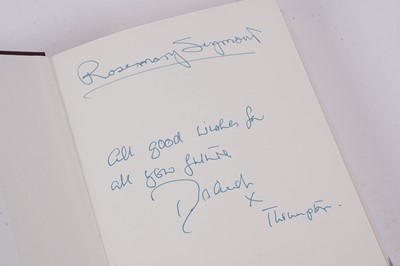 Rosemary Seymour
All good wishes for
all your future
x
Thompson.